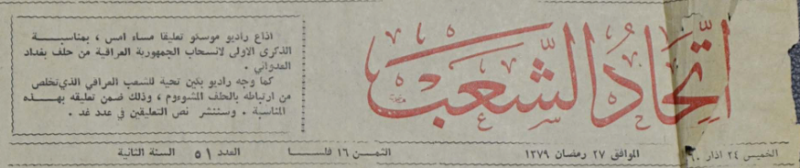 اتحاد الشعب
اذاع راديو موسكو تعليقا مساء امس ، بمناسبة
الذكرى الاولى لانسحاب الجمهورية العراقية من حلف بغداد
العدواني .
كما وجه راديو بكين تحية للشعب العراقي الذي تخلص
من ارتباطه بالحلف المشووم ، وذلك ضمن تعليقه بهذه
المناسبة . وسننشر نص التعليقين في عدد غد .
الخميس ٢٤ اذار ٦٠ الموافق ٢٧ رمضان ١٣٧٩ الثمن ١٦ فلسا العدد ٥١ السنة الثانية